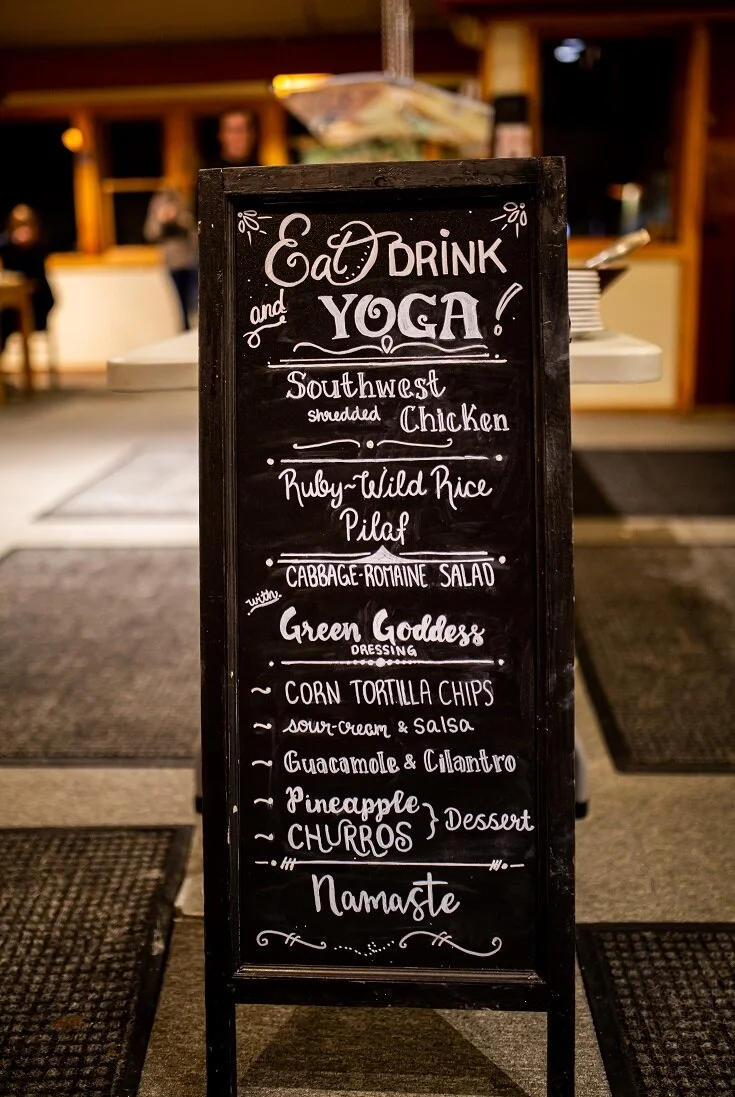 Eat DRINK
and YOGA!
Southwest
shredded Chicken
Ruby~Wild Rice
Pilaf
CABBAGE-ROMAINE SALAD
with
Green Goddess
DRESSING
~ CORN TORTILLA CHIPS
~ sour-cream & salsa
~ Guacamole & Cilantro
~ Pineapple
~ CHURROS } Dessert
Namaste